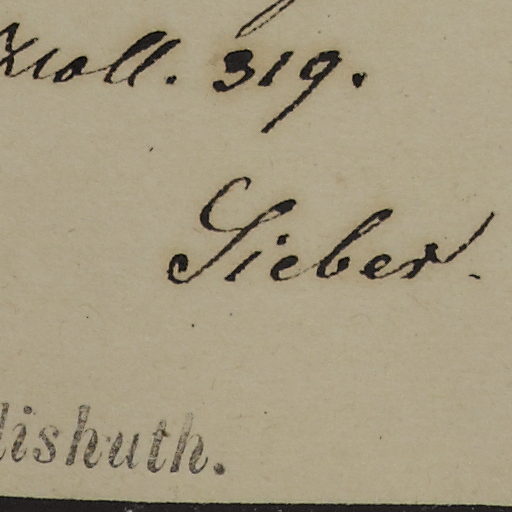 Kroll. 319.
Sieber.
lishuth.